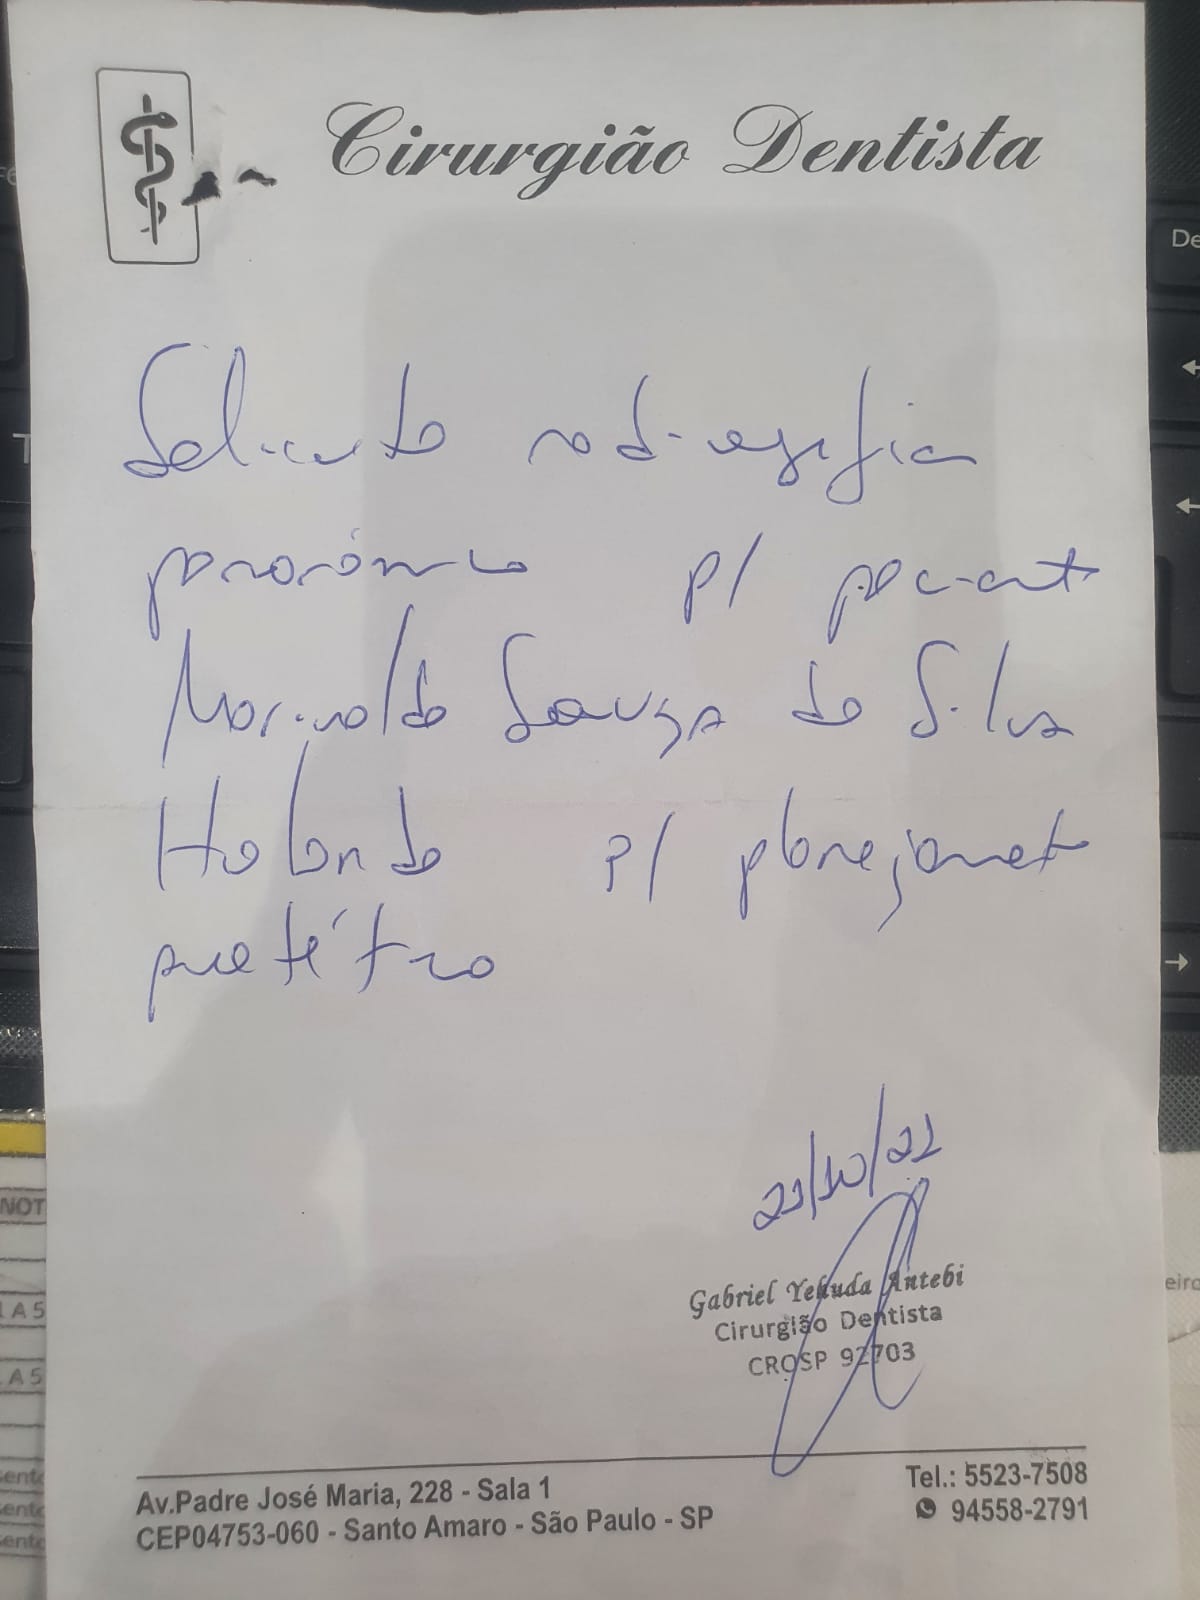 Cirurgião Dentista
Solicito radiografia
panorâmica p/ paciente
Marinaldo Souza da Silva
Holanda p/ planejamento
protético
21/10/22
Gabriel Yehuda Antebi
Cirurgião Dentista
CROSP 92703
Av.Padre José Maria, 228 - Sala 1
CEP04753-060 - Santo Amaro - São Paulo - SP
Tel.: 5523-7508
94558-2791
De
NOT